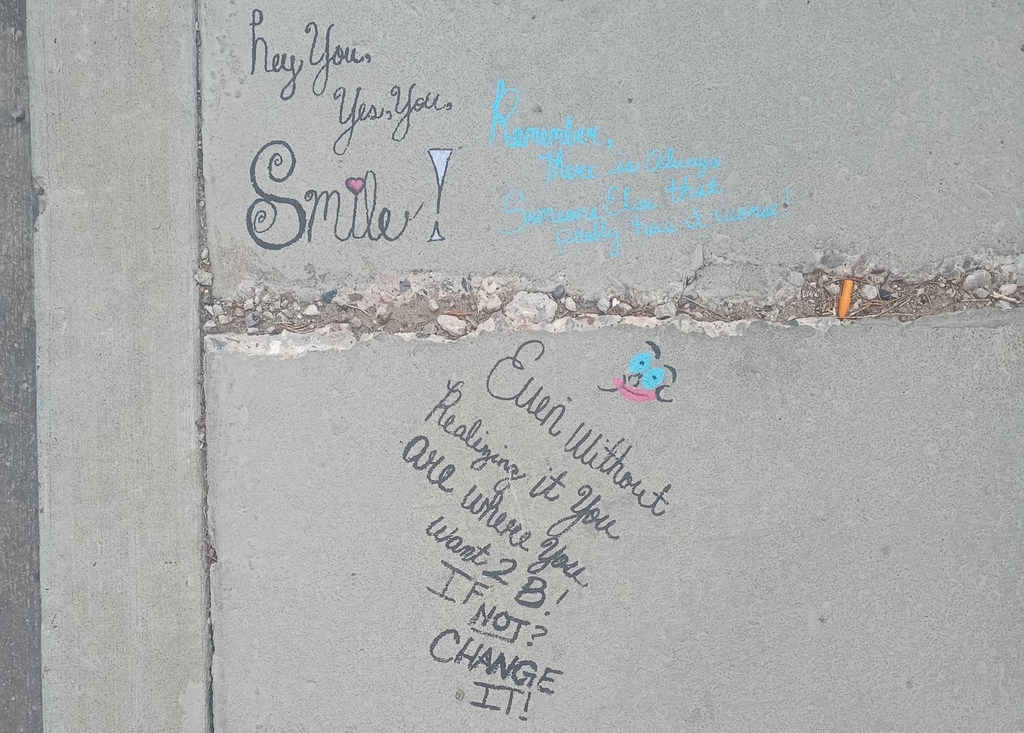 Hey, You,
Yes, You,
Smile!
Remember,
there is Always
Someone Else that
really has it worse!
Even Without
Realizing it You
are where You
want 2 B!
IF
NOT?
CHANGE
IT!